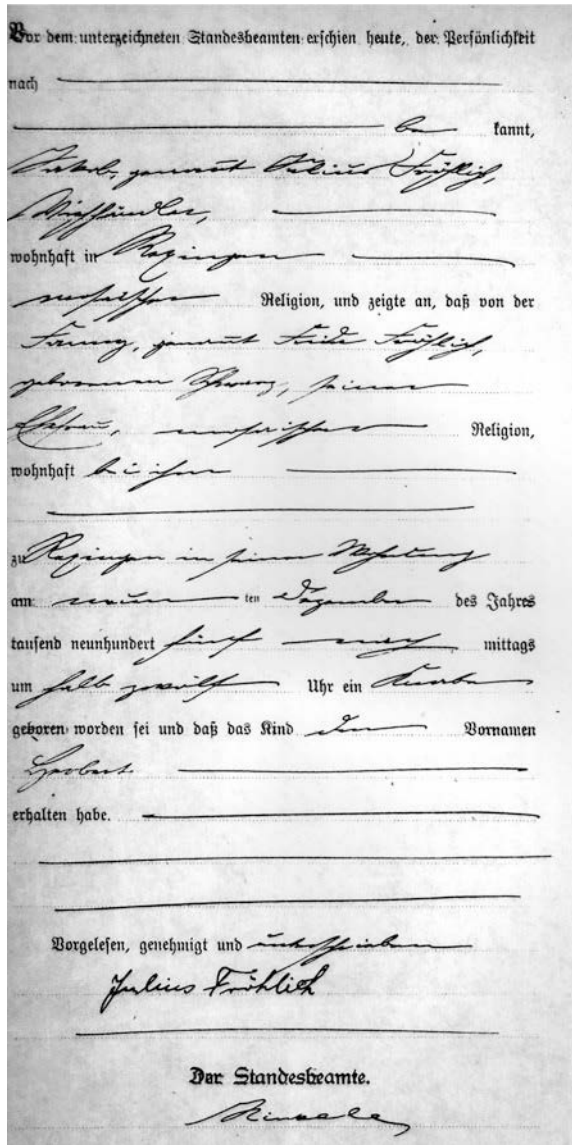 Vor dem unterzeichneten Standesbeamten erschien heute, der Persönlichkeit
nach
be kannt,
Jakob, genannt Julius Fröhlich,
Viehhändler,
wohnhaft in Rexingen
mosaischer Religion, und zeigte an, daß von der
Fanny, genannt Frida Fröhlich,
geborenen Schwarz, seiner
Ehefrau, mosaischer Religion,
wohnhaft bei ihm
zu Rexingen in seiner Wohnung
am neun ten Dezember des Jahres
tausend neunhundert fünf nach mittags
um halb zwölf Uhr ein Knabe
geboren worden sei und daß das Kind den Vornamen
Herbert
erhalten habe.
Vorgelesen, genehmigt und unterschrieben
Julius Fröhlich
Der Standesbeamte.